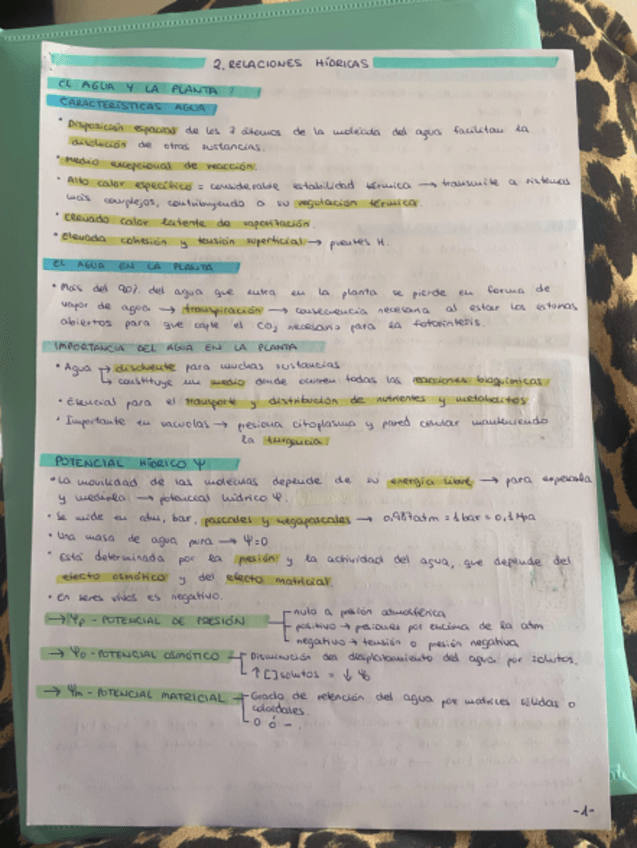 2. RELACIONES HÍDRICAS
EL AGUA Y LA PLANTA
CARACTERÍSTICAS AGUA
• Disposición espacial de los 3 átomos de la molécula del agua facilitan la
disolución de otras sustancias.
• Medio excepcional de reacción.
• Alto calor específico = considerable estabilidad térmica → transmite a sistemas
más complejos, contribuyendo a su regulación térmica.
• Elevado calor latente de vaporización.
• Elevada cohesión y tensión superficial → puentes H.
EL AGUA EN LA PLANTA
• Más del 90% del agua que entra en la planta se pierde en forma de
vapor de agua → transpiración → consecuencia necesaria al estar los estomas
abiertos para que capte el CO₂ necesario para la fotosíntesis.
IMPORTANCIA DEL AGUA EN LA PLANTA
• Agua → disolvente para muchas sustancias
↳ constituye un medio donde ocurren todas las reacciones bioquímicas
• Esencial para el transporte y distribución de nutrientes y metabolitos
• Importante en vacuolas → presiona citoplasma y pared celular manteniendo
la turgencia
POTENCIAL HÍDRICO Ψ
• La movilidad de las moléculas depende de su energía libre → para expresarla
y medirla → potencial hídrico Ψ.
• Se mide en atm, bar, pascales y megapascales → 0,987atm = 1bar = 0,1Mpa
• Una masa de agua pura → Ψ=0
• Está determinada por la presión y la actividad del agua, que depende del
efecto osmótico y del efecto matricial.
• En seres vivos es negativo.
→ Ψp - POTENCIAL DE PRESIÓN
nulo a presión atmosférica
positivo → presiones por encima de la atm
negativo → tensión o presión negativa
→ Ψo - POTENCIAL OSMÓTICO
Disminución del desplazamiento del agua por solutos.
↑[ ]solutos = ↓Ψo
→ Ψm - POTENCIAL MATRICIAL
Grado de retención del agua por matrices sólidas o
coloidales.
0 ó -.
-1-